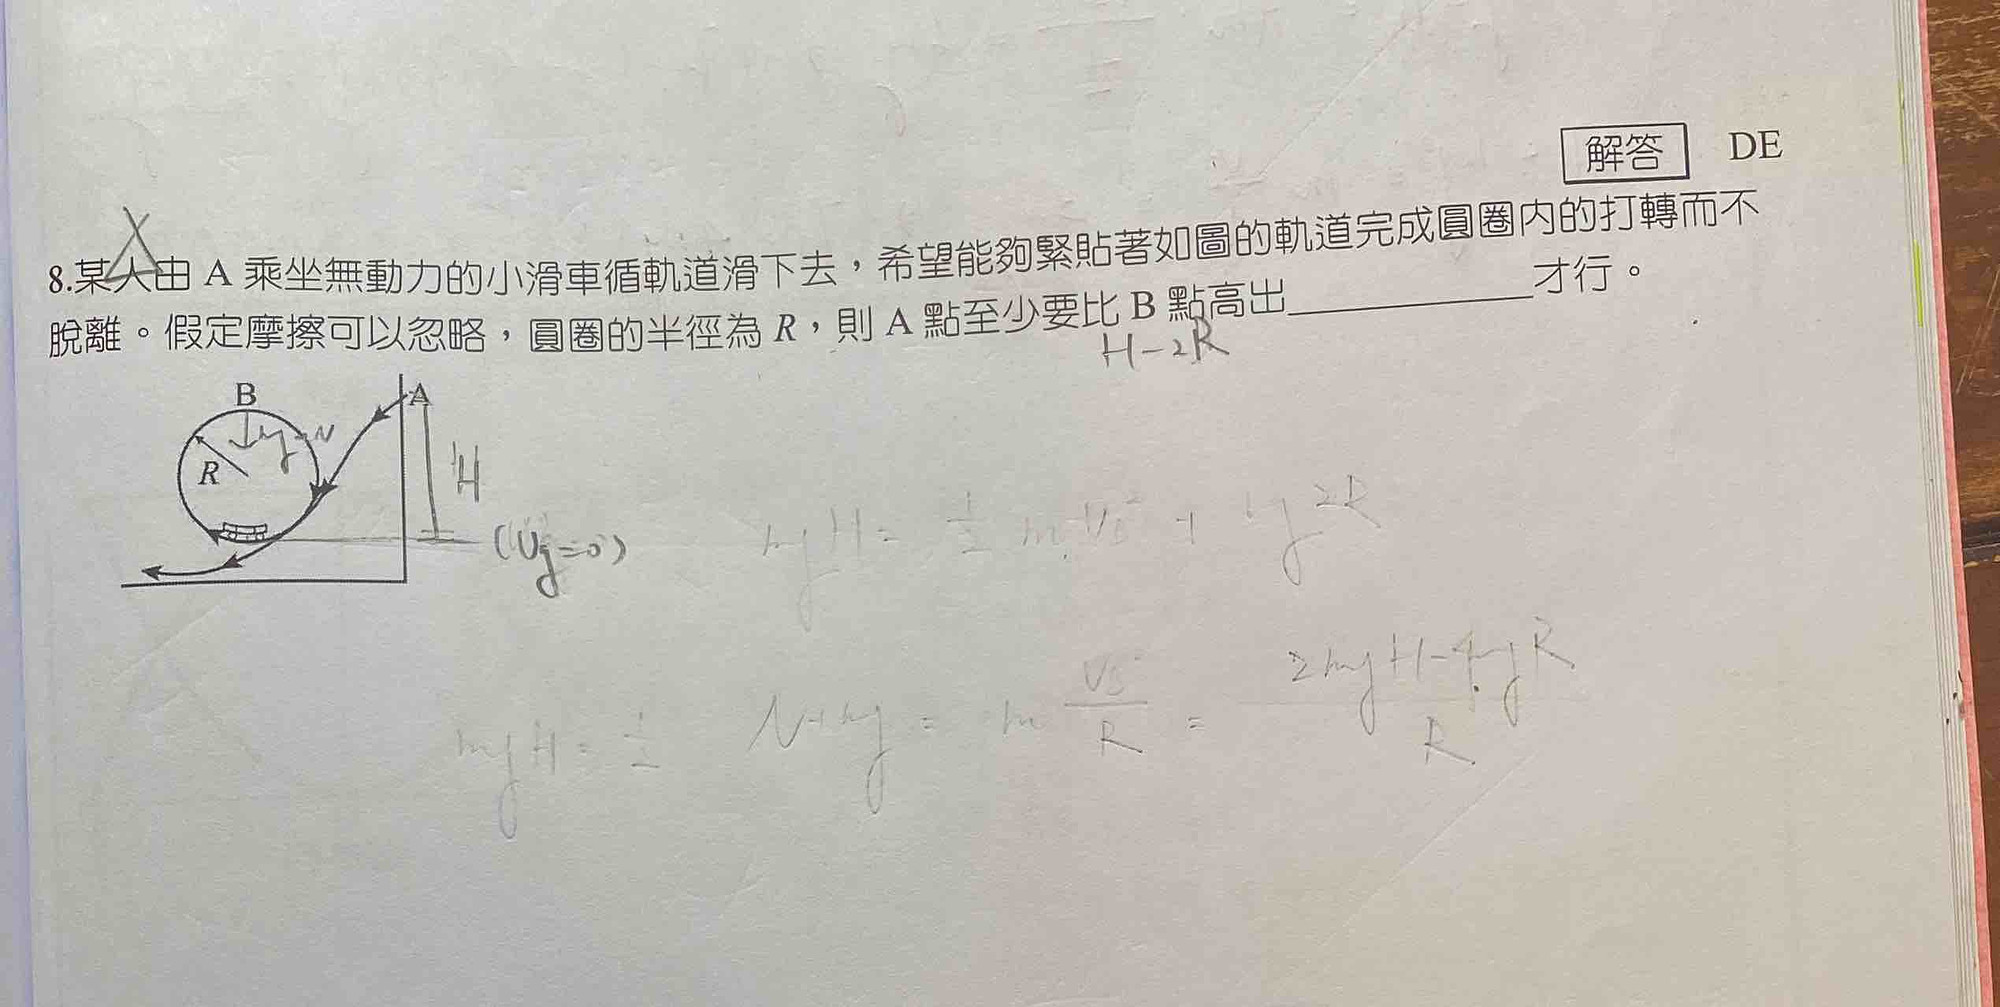 解答 DE
8.某人由 A 乘坐無動力的小滑車循軌道滑下去，希望能夠緊貼著如圖的軌道完成圓圈內的打轉而不
脫離。假定摩擦可以忽略，圓圈的半徑為 R，則 A 點至少要比 B 點高出__________才行。
H-2R
B
A
R
H
(Ug=0)
mgH = 1/2 m VB² + mg2R
N+mg = m VB²/R = 2mgH-4mgR/R
mgH = 1/2